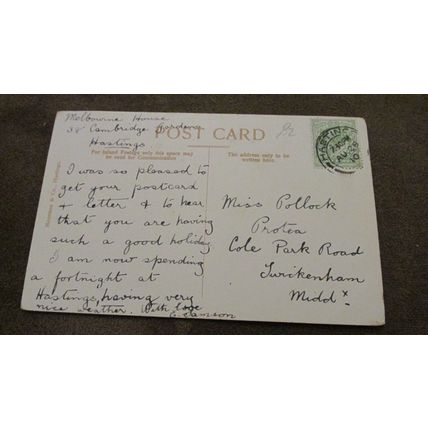 Melbourne House
38 Cambridge Gardens
Hastings
POST CARD
For Inland Postage only this space may
be used for Communication
The address only to be
written here.
I was so pleased to
get your postcard
& letter & to hear
that you are having
such a good holiday
I am now spending
a fortnight at
Hastings, having very
nice weather. With love
E. Samson
Miss Pollock
Protea
Cole Park Road
Twickenham
Middx
HASTINGS
AU 26
10